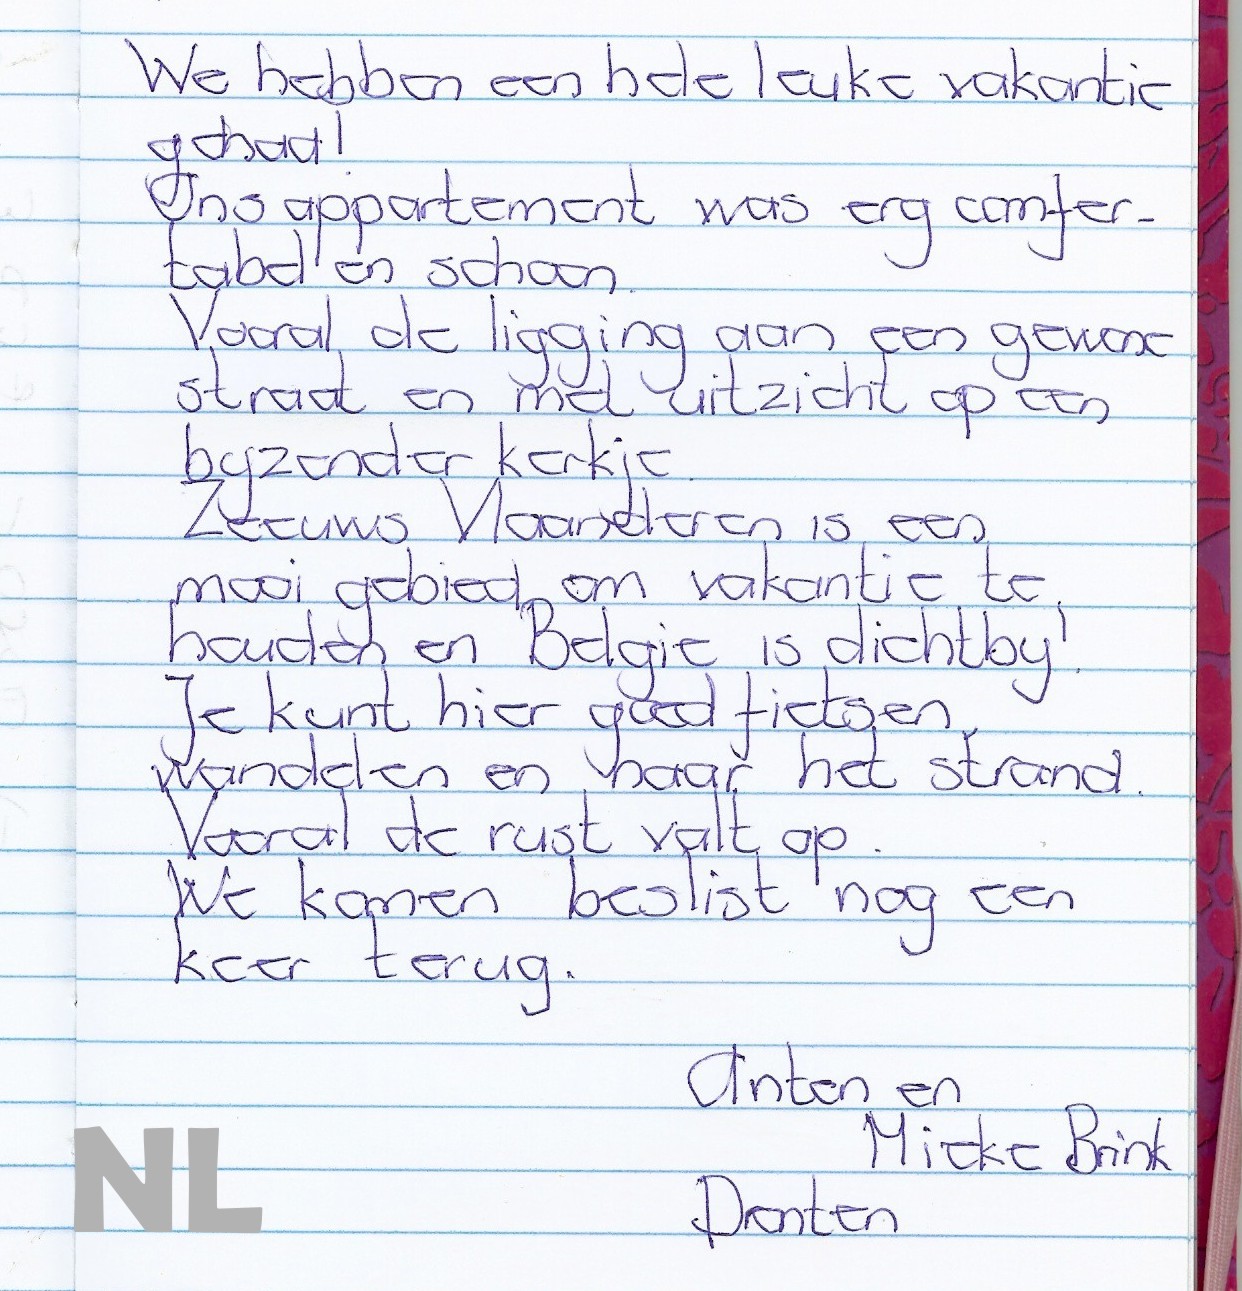 We hebben een hele leuke vakantie
gehad!
Ons appartement was erg comfor-
tabel en schoon.
Vooral de ligging aan een gewone
straat en met uitzicht op een
byzonder kerkje.
Zeeuws Vlaanderen is een
mooi gebied om vakantie te
houden en Belgie is dichtby!
Je kunt hier goed fietsen,
wandelen en naar het strand.
Vooral de rust valt op.
We komen beslist nog een
keer terug.
Anton en
Mieke Brink
Dronten
NL